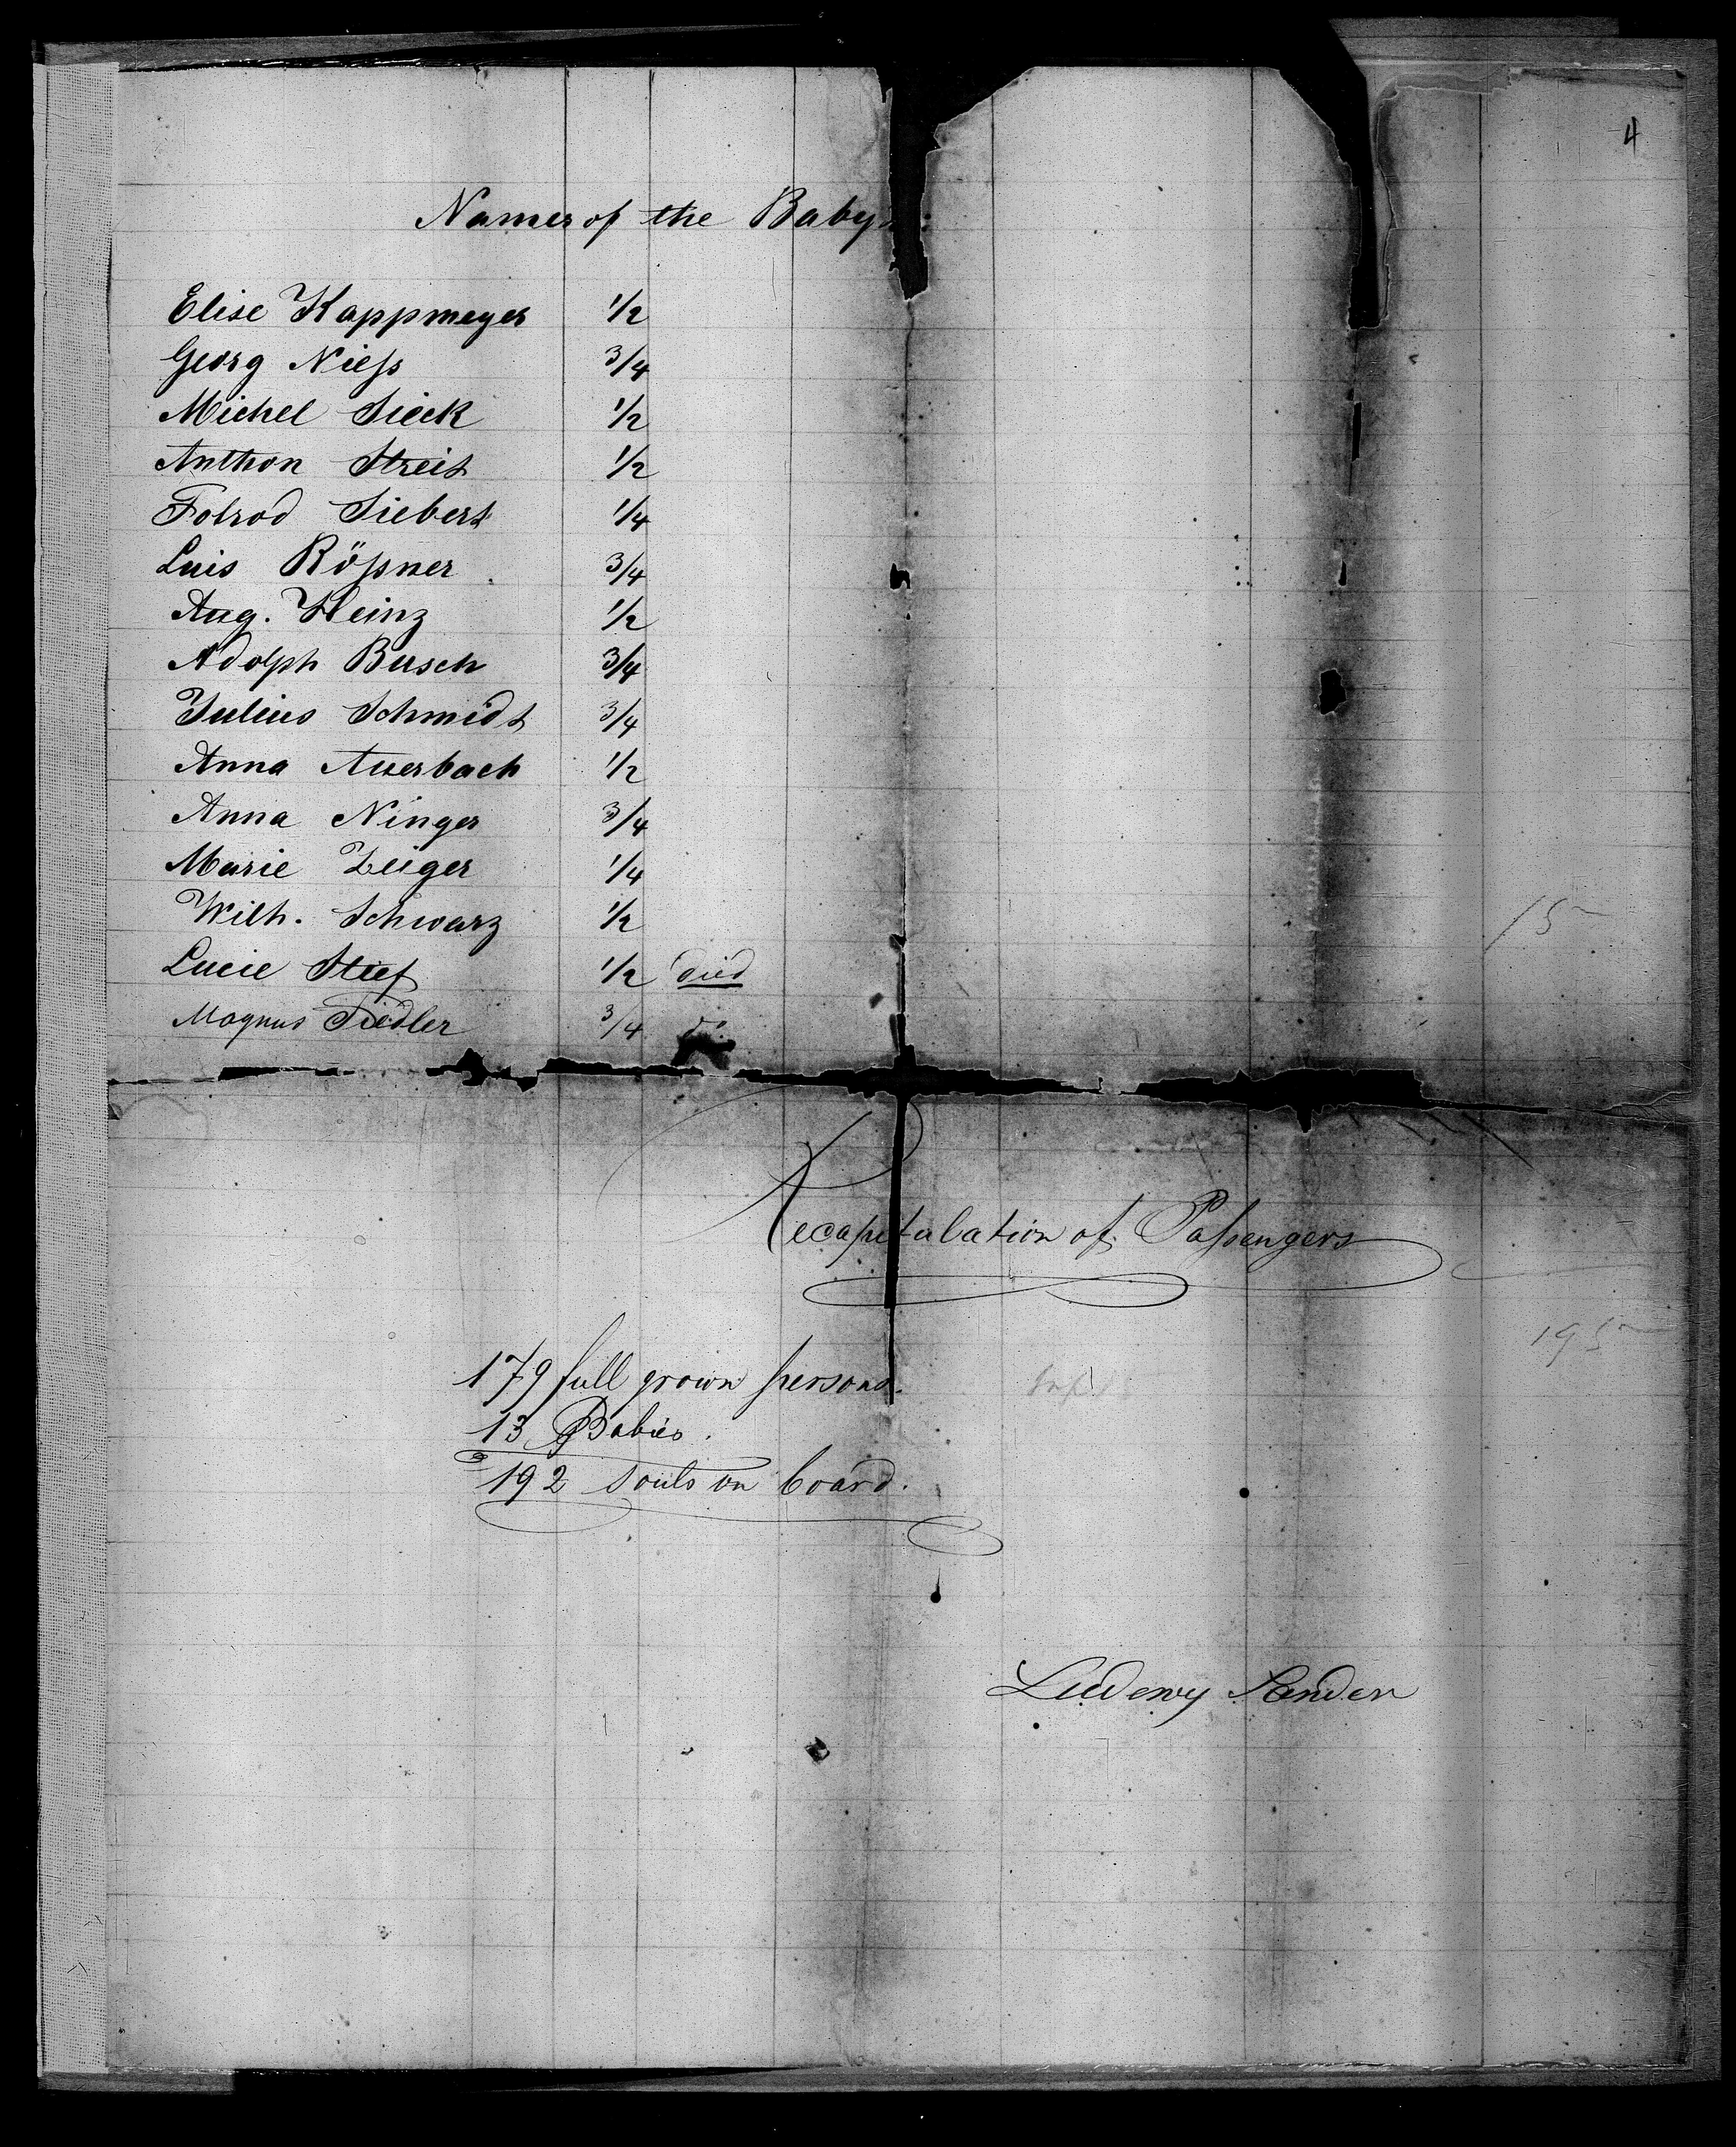 4
Names of the Babys:
Elise Kappmeyer 1/2
Georg Nieſs 3/4
Michel Sieck 1/2
Anthon Streit 1/2
Folrod Siebert 1/4
Luis Röſsner 3/4
Aug. Heinz 1/2
Adolph Busch 3/4
Julius Schmidt 3/4
Anna Auerbach 1/2
Anna Ninger 3/4
Marie Zeiger 1/4
Wilh. Schwarz 1/2
15
Lucie Stief 1/2 died
Magnus Fiedler 3/4 do
Recapitulation of Paſsengers
195
179 full grown persons.
13 Babies.
192 souls on board.
Ludewig Sander